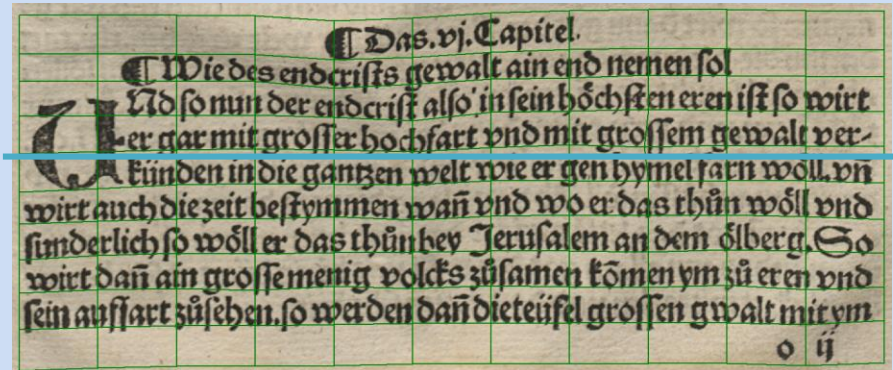 ¶ Das.vj.Capitel.
¶ Wie des endcrists gewalt ain end nemen sol
UNd so nun der endcrist also in sein höchsten eren ist so wirt
er gar mit grosser hochfart vnd mit grossem gewalt ver⸗
künden in die gantzen welt wie er gen hymel farn wöll. vñ
wirt auch die zeit bestymmen wañ vnd wo er das thůn wöll vnd
sunderlich so wöll er das thůn bey Jerusalem an dem ölberg. So
wirt dañ ain grosse menig volcks zůsamen kõmen ym zů eren vnd
sein auffart zůsehen. so werden dañ die teüfel grossen gwalt mit ym
o ij